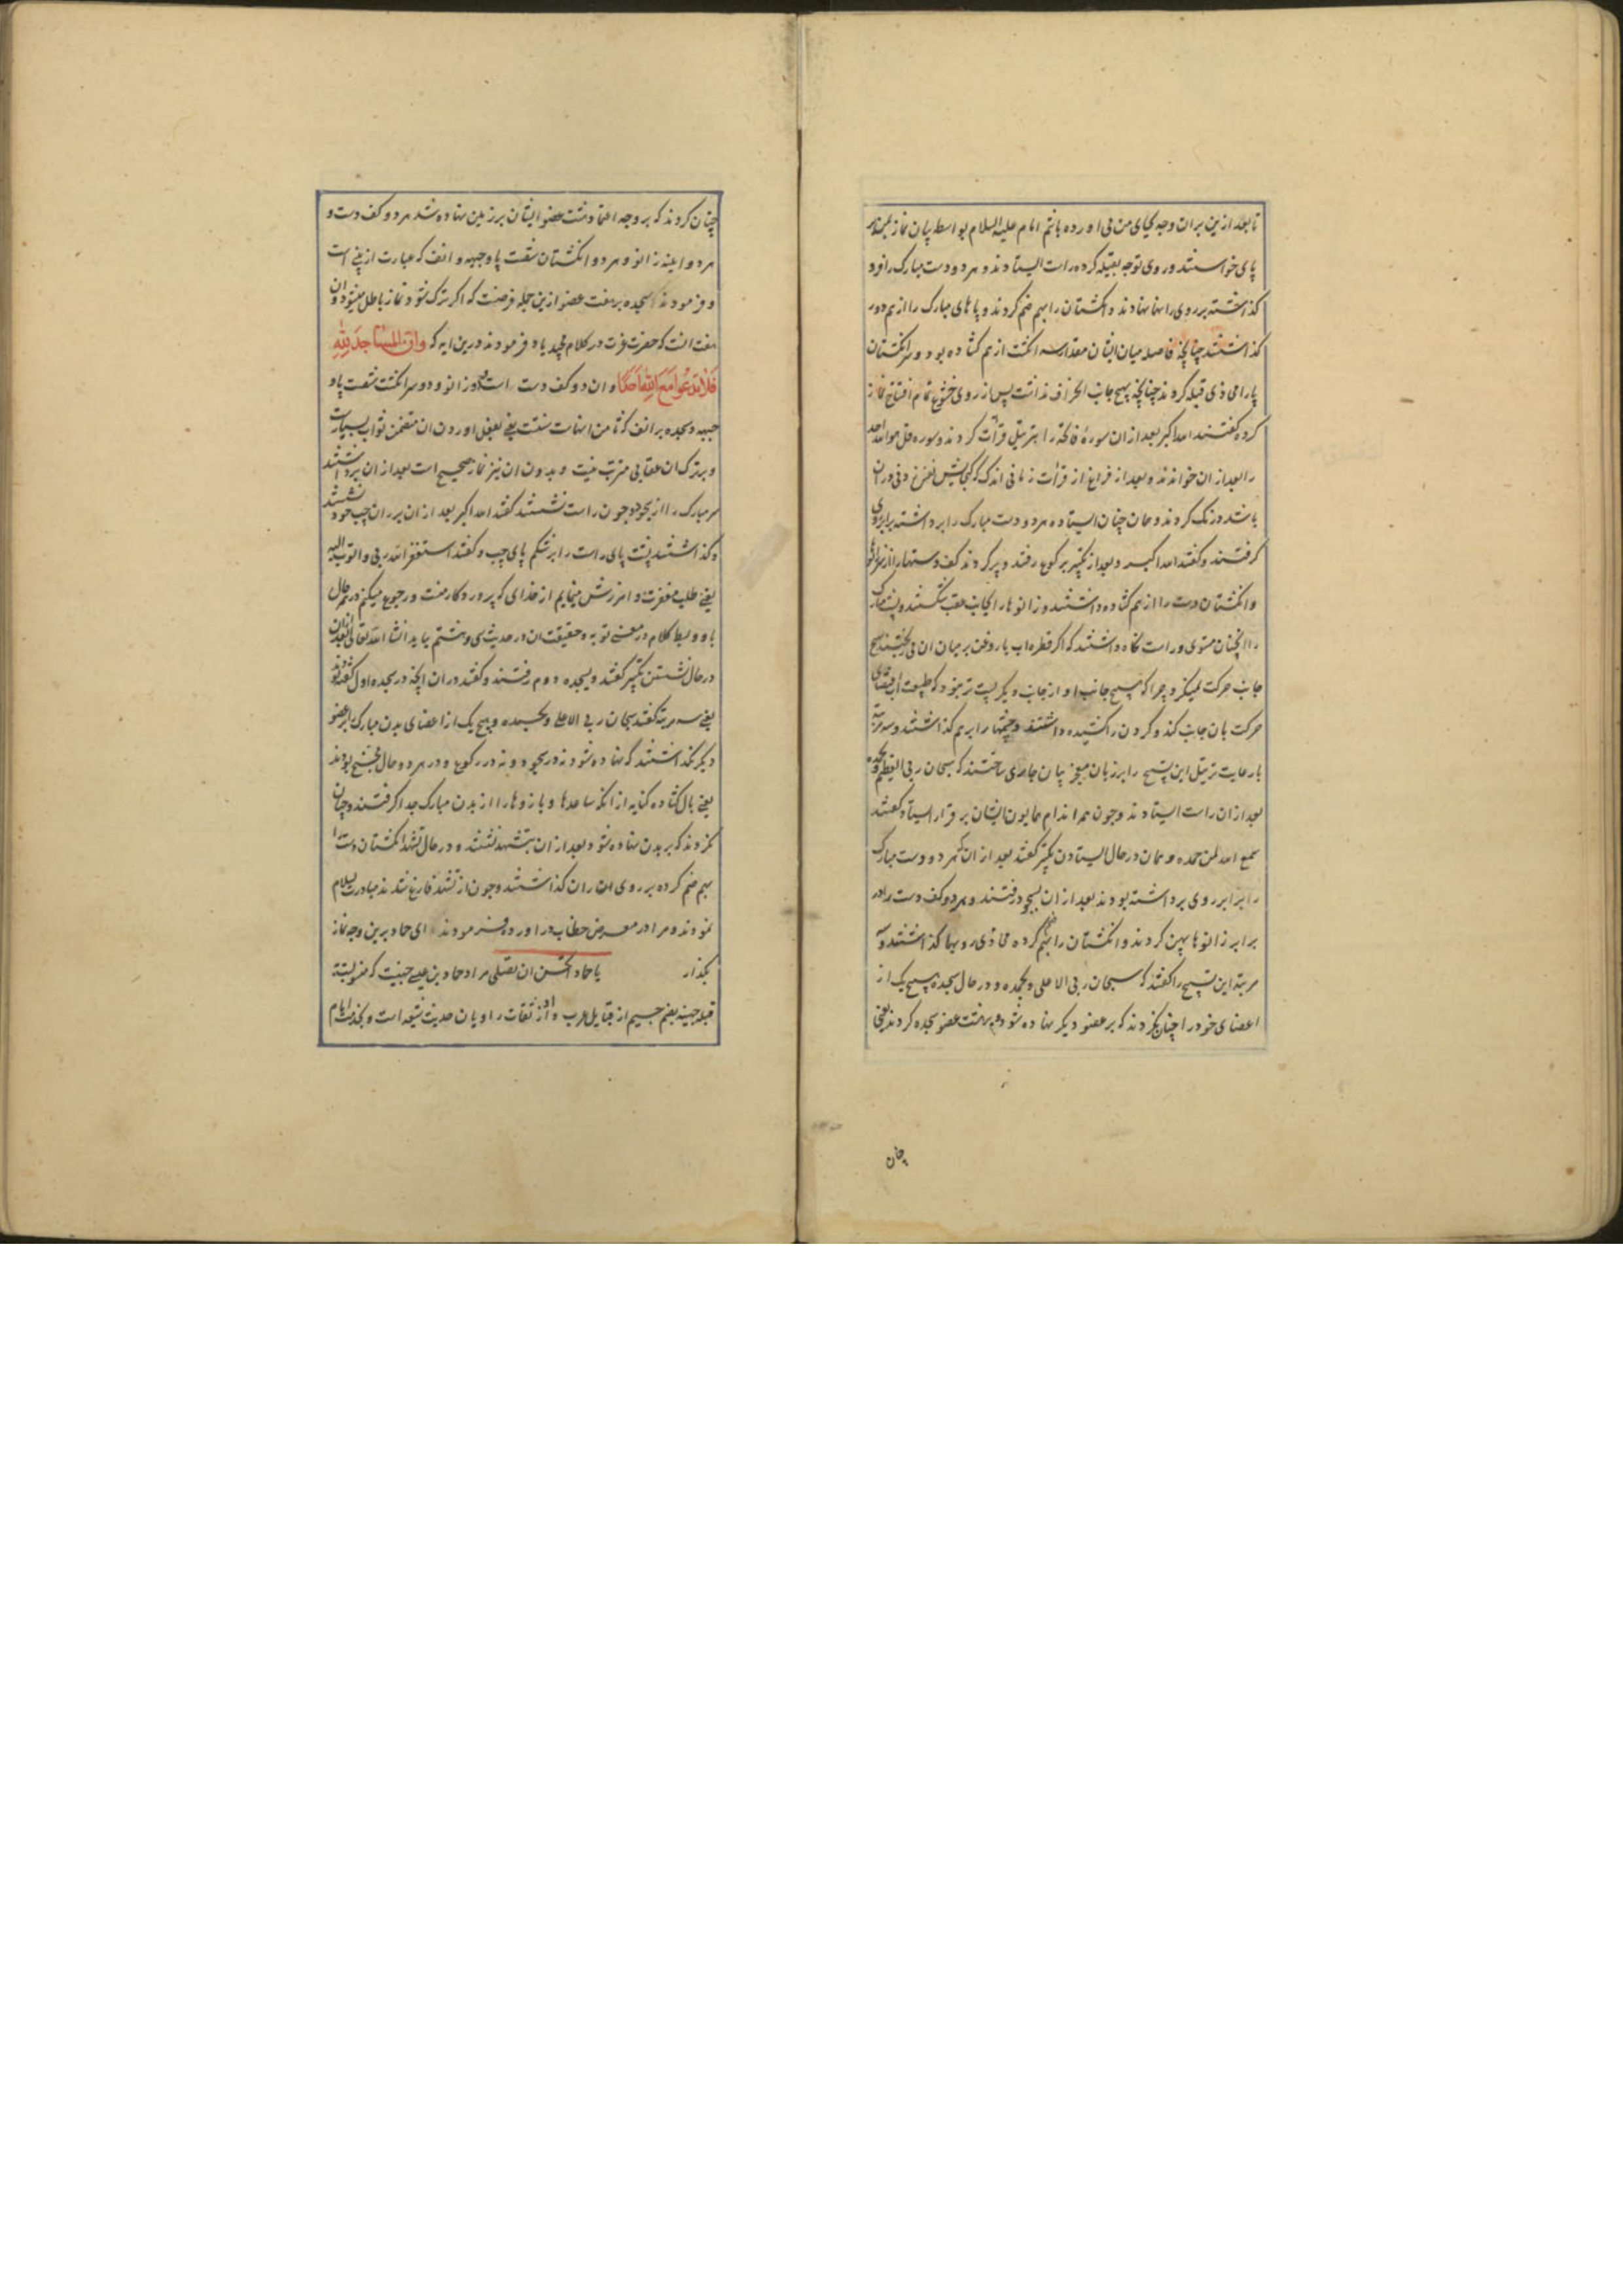 تا بعد ازین بران وجه بجای من می اورده باشم امام علیه السلام بواسطه بیان نماز
پای خواستند و روی توجه بقبله کرده راست ایستادند و هر دو دست مبارک را فرو
کذاشته بر روی رانها نهادند و انکشتان را بهم ضم کردند و پاهای مبارک را از هم دور
کذاشتند چنانچه فاصله میان ایشان مقدار سه انکشت از هم کشاده بود و سر انکشتان
پا را محاذی قبله کردند چنانچه بهیچ جانب انحراف نداشت پس از روی خشوع تمام افتتاح نماز
کرده کفتند الله اکبر بعد ازان سورهٔ فاتحه را بترتیل قرآت کردند و سوره قل هو الله احد
را بعد ازان خواندند و بعد از فراغ از قرأت زمانی اندک که کنجایش نفس زدنی دران
باشد درنک کردند و همان چنان ایستاده هر دو دست مبارک را برداشته برابر روی
کرفتند و کفتند الله اکبر و بعد از تکبیر برکوع رفتند و پر کردند کف دستها را از زانو
و انکشتان دست را از هم کشاده داشتند و زانوها را بجانب عقب شکستند و پشت مبارک
را انچنان مستوی و راست نکاه داشتند که اکر قطره اب یا روغن بر میان ان می ریختند بهیچ
جانب حرکت نمیکرد چرا که هیچ جانب او از جانب دیکر پست تر نبود که طبیعت اب اقتضای
حرکت بان جانب کند و کردن را کشیده داشتند و چشمها را بر هم کذاشتند و سه مرتبه
با رعایت ترتیل این تسبیح را بر زبان معجز بیان جاری ساختند که سبحان ربی العظیم وبحمده
بعد ازان راست ایستادند و چون همه اندام همایون ایشان بر قرار ایستاد کفتند
سمع الله لمن حمده و همان در حال ایستادن تکبیر کفتند بعد ازان که هر دو دست مبارک
را برابر روی برداشته بودند بعد ازان بسجود رفتند و هر دو کف دست را در
برابر زانوها پهن کردند و انکشتان را بهم ضم کرده محاذی رویها کذاشتند و سه
مرتبه این تسبیح را کفتند که سبحان ربی الاعلی وبحمده و در حال سجده هیچ یک از
اعضای خود را چنان نکردند که بر عضو دیکر نهاده شود و بر هشت عضو سجده کردند یعنی
چنان
چنان کردند که بر وجه اعتماد هشت عضو ایشان بر زمین نهاده شد هر دو کف دست و
هر دو اینه زانو و هر دو انکشتان شفت پا و جبهه و انف که عبارت از بینی است
و فرمودند سجده بر هفت عضو ازین جمله فرضست که اکر ترک شود نماز باطل میشود و ان
هفت انست که حضرت عزت در کلام مجید یاد فرمودند درین ایه که وَاَنَّ المَسَاجِدَ لِلّٰهِ
فَلَا تَدْعُوا مَعَ اللهِ اَحَدًا و ان دو کف دست است و دو زانو و دو سر انکشت شفت پا و
جبهه و سجده بر انف که ثامن انهاست سنت یعنی بفعل اوردن ان متضمن ثواب بسیارست
و بر ترک ان عقابی مترتب نیست و بدون ان نیز نماز صحیح است بعد ازان برداشتند
سر مبارک را از سجود چون راست نشستند کفتند الله اکبر بعد ازان بر ران چپ خود نشستند
و کذاشتند پشت پای راست را بر شکم پای چپ و کفتند استغفر الله ربی و اتوب الیه
یعنی طلب مغفرت و امرزش مینمایم از خدای که پروردکار منست و رجوع میکنم در همه حال
باو و بسط کلام در معنی توبه و حقیقت ان در حدیث سی و هشتم بیاید انشا الله تعالی بعد ازان
در حال نشستن تکبیر کفتند و بسجده دوم رفتند و کفتند دران انچه در سجده اول کفته بودند
یعنی سه مرتبه کفتند سبحان ربی الاعلی وبحمده و هیچ یک از اعضای بدن مبارک را بر عضو
دیکر نکذاشتند که نهاده شود نه در سجود و نه در رکوع و در هر دو حال مجنح بودند
یعنی بال کشاده کنایه از انکه ساعدها و بازوها را از بدن مبارک جدا کرفتند و چنان
نکردند که بر بدن نهاده شود بعد ازان بتشهد نشستند و در حال تشهد انکشتان دست را
بهم ضم کرده بر روی ان ران کذاشتند و چون از تشهد فارغ شدند مبادرت بسلام
نمودند و مرا در معرض خطاب در اورده فرمودند ای حماد برین وجه نماز
بکذار یا حماد اتحسن ان تصلی مراد حماد بن عیسی جهنیست که منسوبست
قبیله جهینه بضم جیم از قبایل عرب و او از ثقات راویان حدیث شیعه است و بخدمت امام